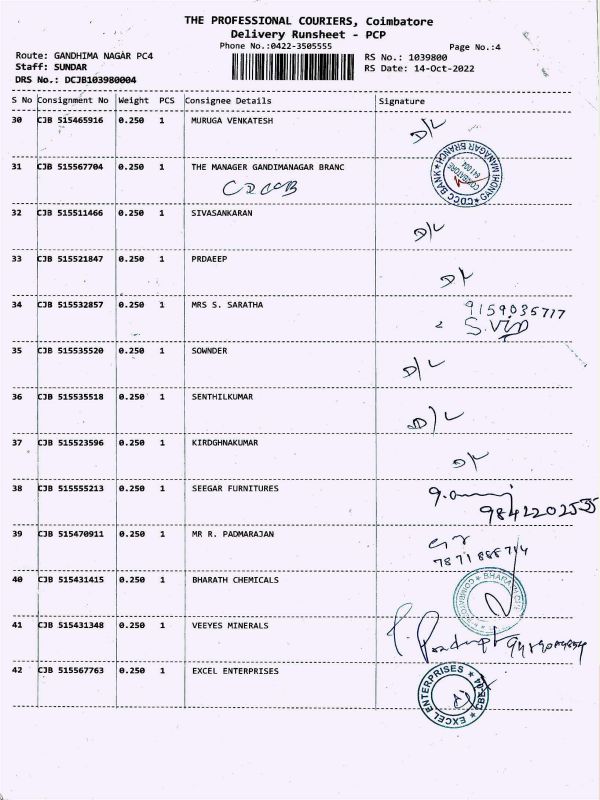 THE PROFESSIONAL COURIERS, Coimbatore
Delivery Runsheet - PCP
Phone No.:0422-3505555
Page No.:4
Route: GANDHIMA NAGAR PC4
RS No.: 1039800
Staff: SUNDAR
RS Date: 14-Oct-2022
DRS No.: DCJB103980004
S No Consignment No Weight PCS Consignee Details Signature
30 CJB 515465916 0.250 1 MURUGA VENKATESH D/L
31 CJB 515567704 0.250 1 THE MANAGER GANDIMANAGAR BRANC
CDCC BANK ★ GANDHI MANAGAR BRANCH
COIMBATORE
641 004
32 CJB 515511466 0.250 1 SIVASANKARAN D/L
33 CJB 515521847 0.250 1 PRDAEEP D/L
34 CJB 515532857 0.250 1 MRS S. SARATHA 9159035717
35 CJB 515535520 0.250 1 SOWNDER D/L
36 CJB 515535518 0.250 1 SENTHILKUMAR D/L
37 CJB 515523596 0.250 1 KIRDGHNAKUMAR D/L
38 CJB 515555213 0.250 1 SEEGAR FURNITURES
9842202535
39 CJB 515470911 0.250 1 MR R. PADMARAJAN
7871888714
40 CJB 515431415 0.250 1 BHARATH CHEMICALS
41 CJB 515431348 0.250 1 VEEYES MINERALS
42 CJB 515567763 0.250 1 EXCEL ENTERPRISES
EXCEL ENTERPRISES ★ CBE-04